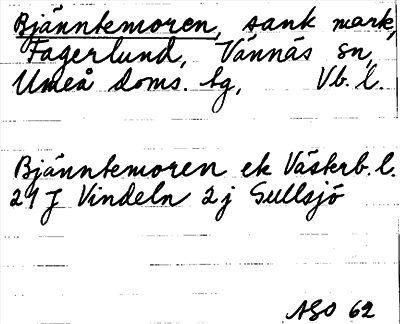 Bjänntemoren, sank mark,
Fagerlund, Vännäs sn,
Umeå doms. lg, Vb. l.
Bjänntemoren ek Västerb. l.
21 J Vindeln 2 j Gullsjö
ASO 62